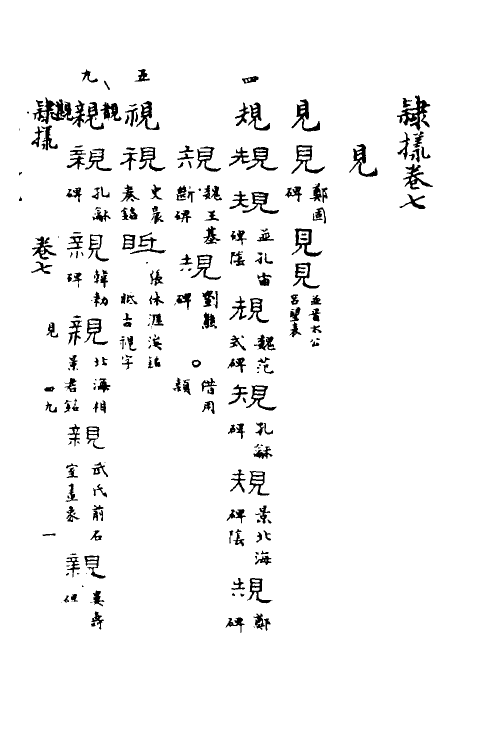 隸㨾卷七
見
見 見 鄭固碑 見 見 並晉太公呂望表
四 規 規 規 並孔宙碑陰 規 魏范式碑 規 孔龢碑 規 景北海碑陰 規 鄭碑
規 魏王基斷碑 規 劉熊碑 ○ 借用
五 視 視 史晨奏銘 眂 張休涯涘銘 眂古視字
九 親 親 孔龢碑 親 韓勑碑 親 北海相景君銘 親 武氏前石室畫象 親 婁壽碑
隸㨾 卷七 見 四九 一